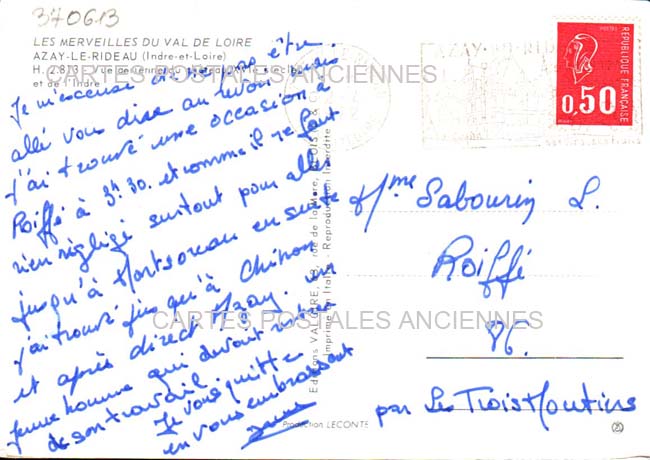 370613
LES MERVEILLES DU VAL DE LOIRE
AZAY-LE-RIDEAU (Indre-et-Loire)
H. 2.813 - Vue aérienne du
et de l'Indre
CARTES POSTALES ANCIENNES
Je m'excuse de ne pas être
allé vous dire au revoir mais
j'ai trouvé une occasion à
Roiffé à 3h30. et comme il ne faut
rien négligé surtout pour aller
jusqu'à Montsoreau ensuite
j'ai trouvé jusqu'à Chinon
et après direct Azay. un
jeune homme qui devait rentrer
de son travail.
Je vous quitte
en vous embrassant
Editions VALOIRE, rue de la Mare, BLOIS
Imprimé en Italie - Reproduction Interdite
AZAY-LE-RIDEAU
POSTES
RÉPUBLIQUE FRANÇAISE
0,50
Mme Sabourin L.
Roiffé
86.
par Les Trois Moutiers
CARTES POSTALES ANCIENNES
Production LECONTE